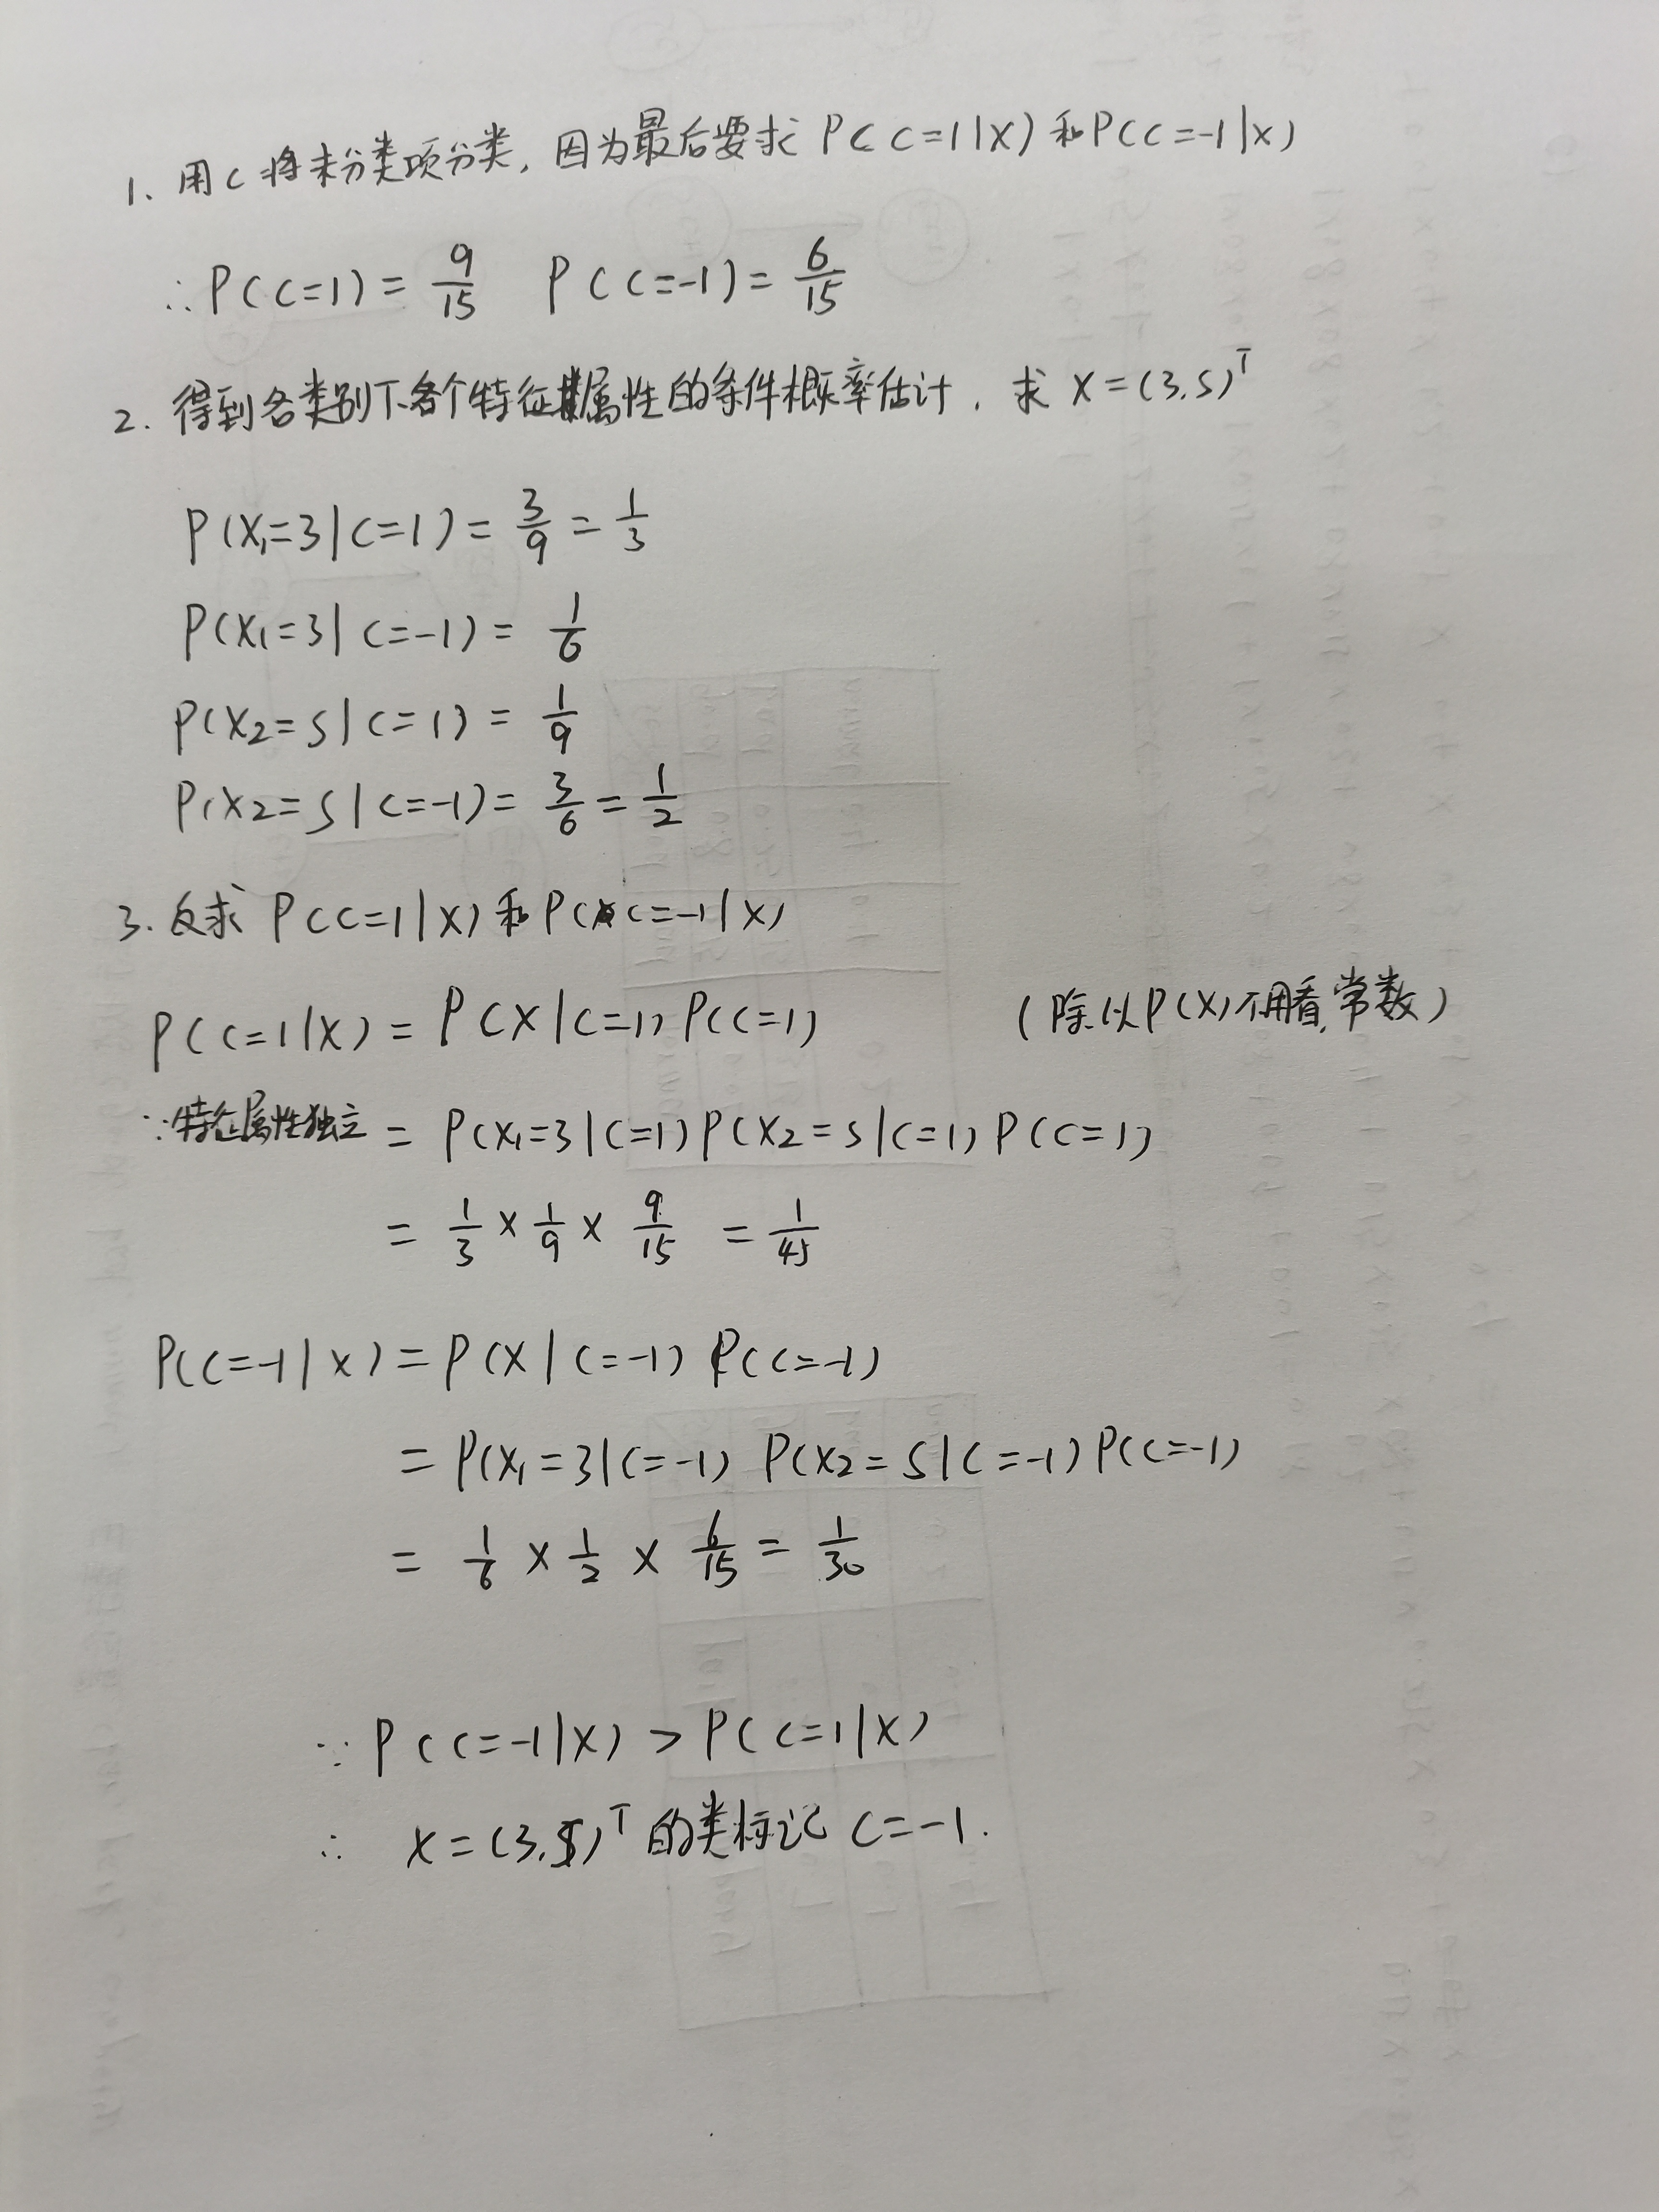 1. 用C将未分类项分类, 因为最后要求 P(C=1|X) 和 P(C=-1|X)
∴ P(C=1) = 9/15 P(C=-1) = 6/15
2. 得到各类别下各个特征属性的条件概率估计, 求 X=(3,S)ᵀ
P(X₁=3|C=1) = 3/9 = 1/3
P(X₁=3|C=-1) = 1/6
P(X₂=S|C=1) = 1/9
P(X₂=S|C=-1) = 3/6 = 1/2
3. 反求 P(C=1|X) 和 P(C=-1|X)
P(C=1|X) = P(X|C=1) P(C=1) (除以P(X)不用看,常数)
∵特征属性独立 = P(X₁=3|C=1) P(X₂=S|C=1) P(C=1)
= 1/3 × 1/9 × 9/15 = 1/45
P(C=-1|X) = P(X|C=-1) P(C=-1)
= P(X₁=3|C=-1) P(X₂=S|C=-1) P(C=-1)
= 1/6 × 1/2 × 6/15 = 1/30
∵ P(C=-1|X) > P(C=1|X)
∴ X=(3,S)ᵀ 的类标记 C=-1.